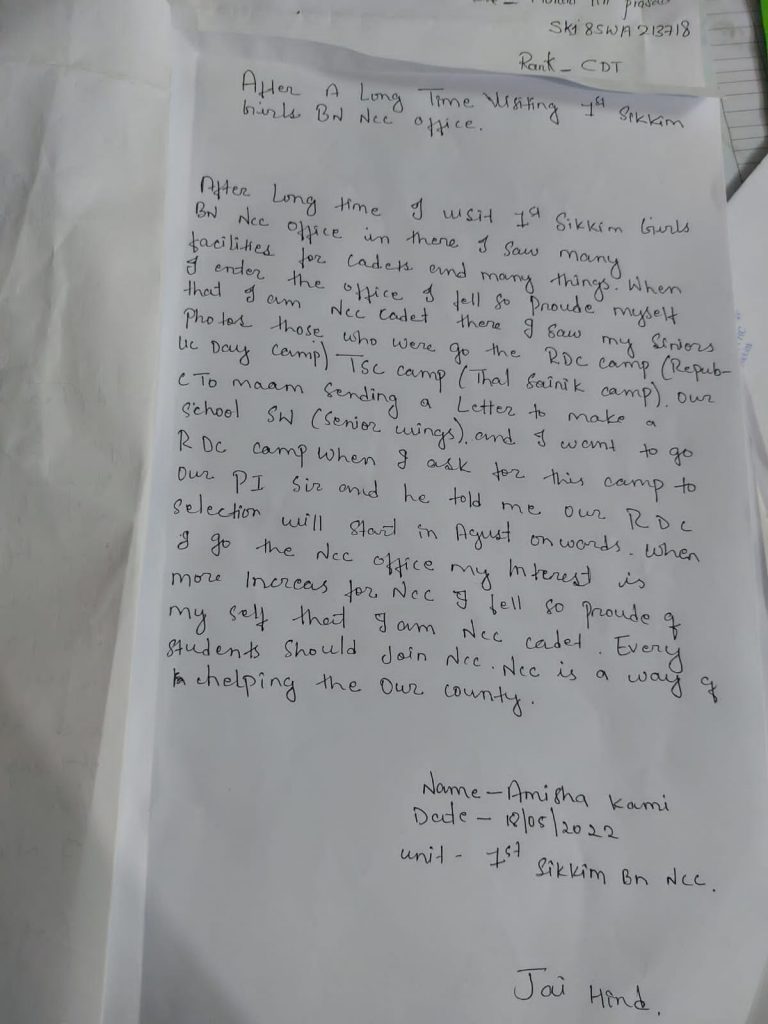 SKI 8SWA 213718
Rank - CDT
After A Long Time Visiting 1st Sikkim
Girls BN Ncc office.
After Long time I visit 1st Sikkim Girls
BN Ncc office in there I saw many
facilities for cadets and many things. When
I enter the office I fell so Proude myself
that I am Ncc cadet there I saw my Siniors
Photos those who were go the RDC camp (Repub-
lic Day camp) TSC camp (Thal Sainik camp). our
CTO maam sending a Letter to make a
School SW (Senior wings). and I want to go
RDC camp when I ask for this camp to
our PI sir and he told me our RDC
selection will start in Agust onwords. when
I go the Ncc office my Interest is
more Increas for Ncc I fell so proude of
my self that I am Ncc cadet. Every
students should Join Ncc. Ncc is a way of
helping the our county.
Name - Amisha Kami
Date - 18/05/2022
unit - 1st Sikkim Bn Ncc.
Jai Hind.